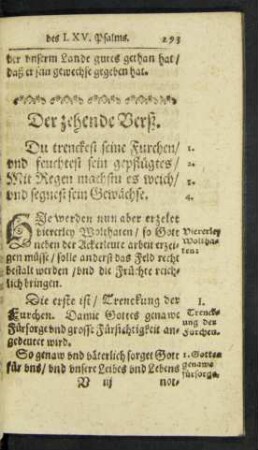 des LXV. Psalms. 293
der vnserm Lande gutes gethan hat /
daß er sein gewechse gegeben hat.
Der zehende Verß.
Du trenckest seine Furchen / 1.
vnd feuchtest sein gepflügtes / 2.
Mit Regen machstu es weich / 3.
vnd segnest sein Gewächse. 4.
HJe werden nun aber erzelet Viererley
viererley Wolthaten / so Gott Woltha-
neben der Ackerleute arbeit erzei- ten:
gen müsse / solle anderst das Feld recht
bestalt werden / vnd die Früchte reich-
lich bringen.
Die erste ist / Trenckung der 1.
Furchen. Damit Gottes genawe Trenck-
Fürsorge vnd grosse Fürsichtigkeit an- ung der
gedeutet wird. Furchen.
So genaw vnd väterlich sorget Gott 1. Gottes
für vns / vnd vnsere Leibes vnd Lebens genawe
V iij not- fürsorge.